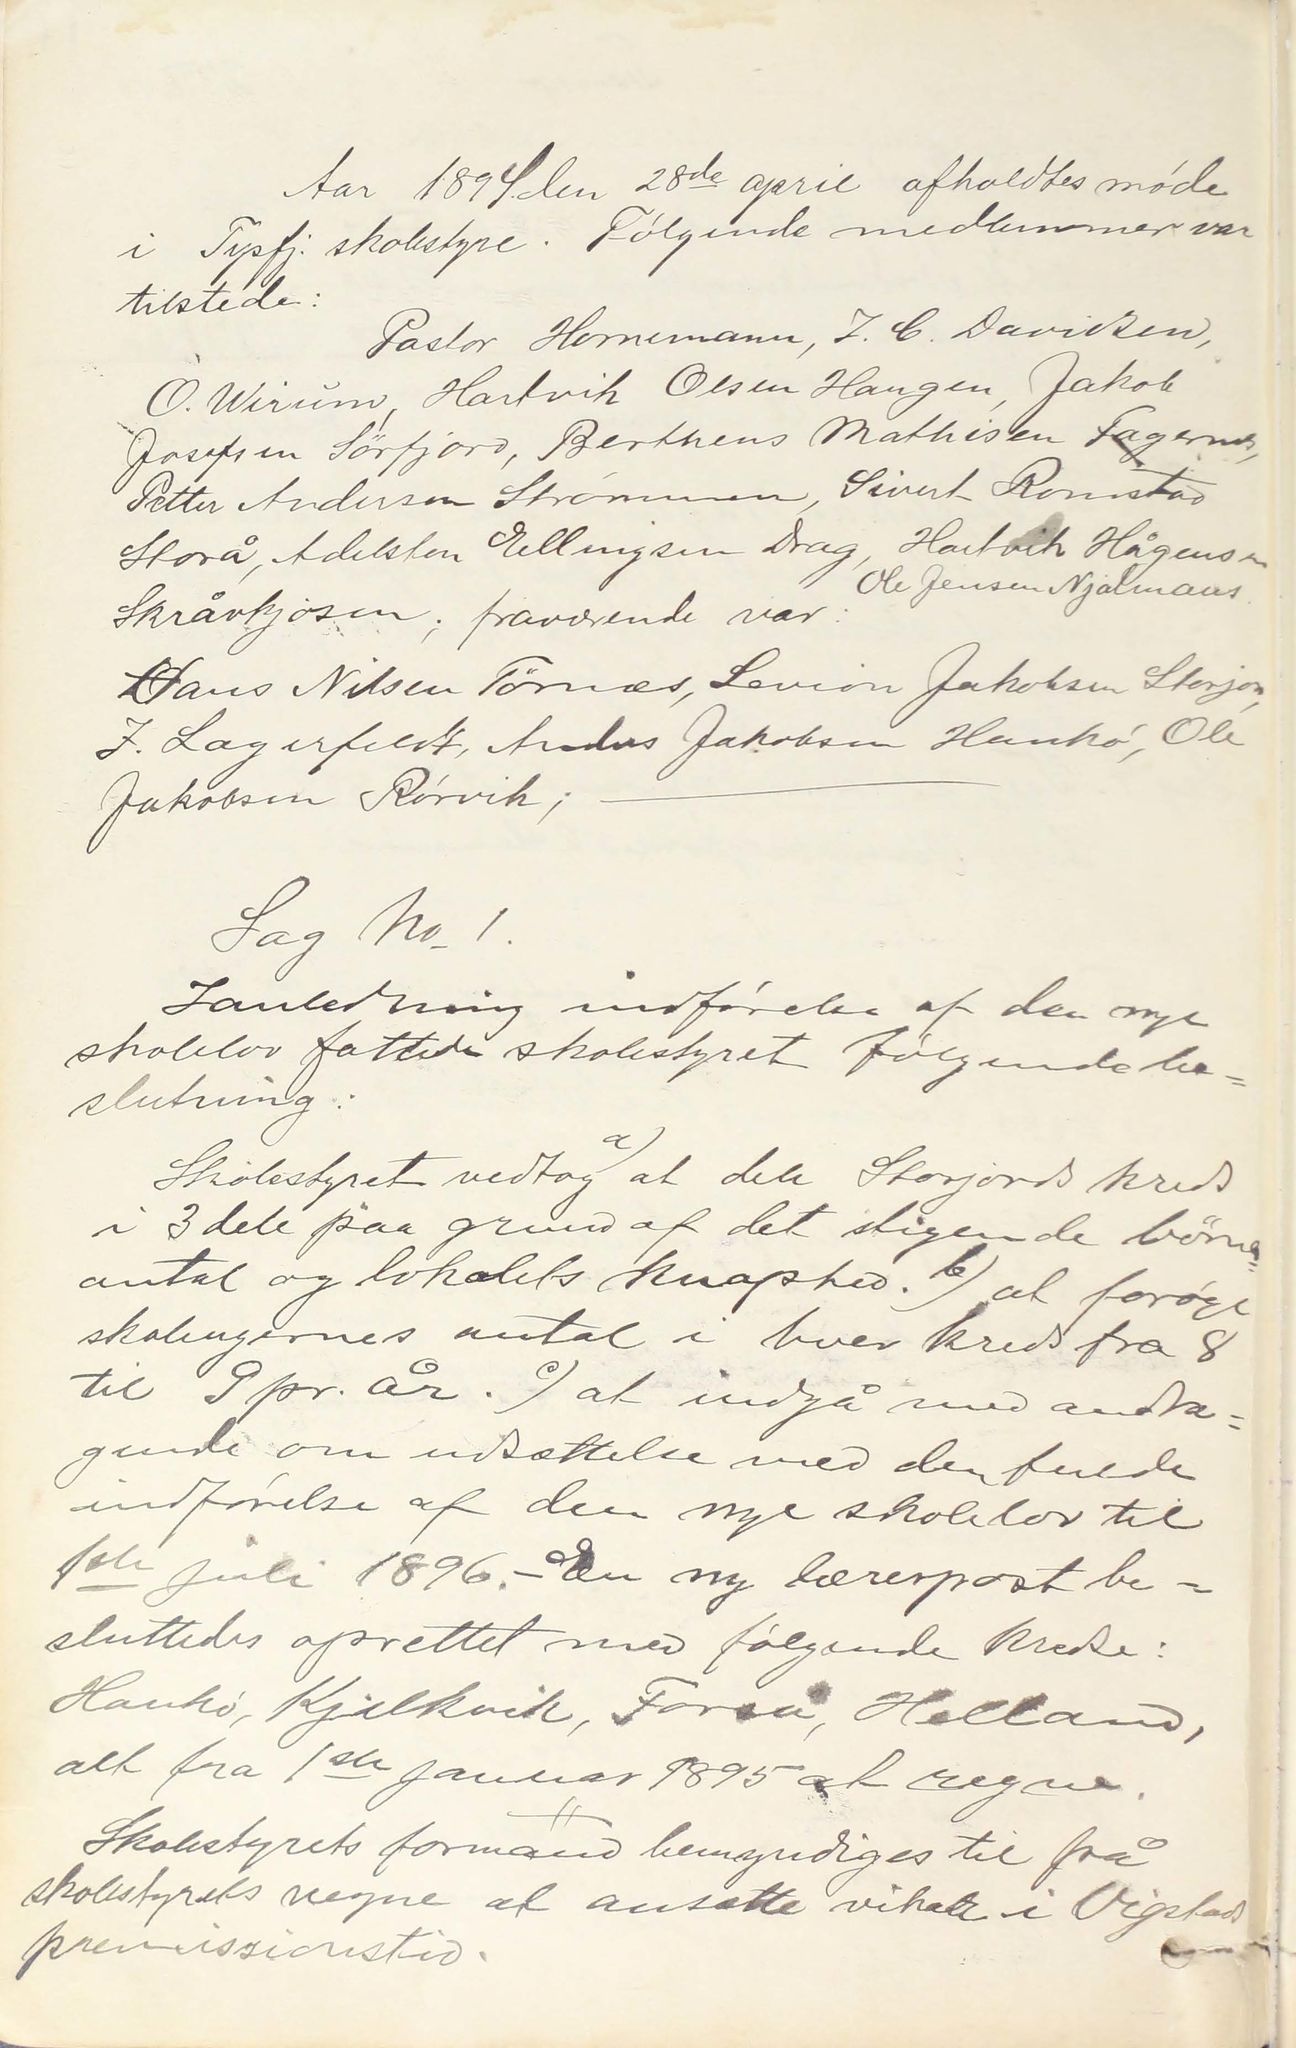 Aar 1894 den 28de april afholdtes møde
i Tysfj. skolestyre. Følgende medlemmer var
tilstede:
Pastor Hornemann, J. C. Davidsen,
O. Wirum, Hartvik Olsen Haugen, Jakob
Josefsen Sörfjord, Bertheus Mathisen Fagernes,
Petter Andersen Strømmen, Sivert Romstad
Storå, Adelsten Ellingsen Drag, Hartvik Hågensen
Ole Jensen Njalmaas
Skråvkjosen; fraværende var:
Hans Nilsen Törnæs, Levion Jakobsen Storjor,
J. Lagerfeldt, Anders Jakobsen Haukø, Ole
Jakobsen Rørvik;
Sag No. 1.
I anledning indførelse af den nye
skolelov fattede skolestyret følgende be=
slutning:
Skolestyret vedtog a) at dele Storjords kreds
i 3 dele paa grund af det stigende börne=
antal og lokalets knaphed. b) at forøge
skoleugernes antal i hver kreds fra 8
til 9 pr. år. c) at indgå med andra=
gende om udsættelse med den fulde
indførelse af den nye skolelov til
1ste juli 1896. – En ny lærerpost be=
sluttedes oprettet med følgende kredse:
Haukø, Kjelkvik, Forså, Helland,
alt fra 1ste januar 1895 at regne.
Skolestyrets formand bemyndiges til frå
skolestyrets vegne at ansætte vikar i Vigstads
premissionstid.